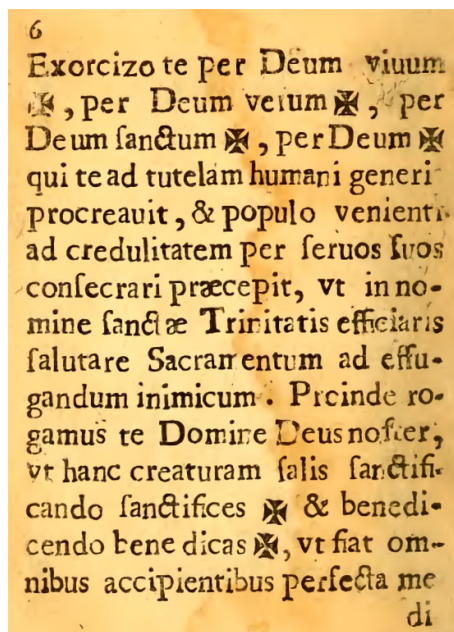 6
Exorcizo te per Deum viuum
✠, per Deum verum ✠, per
Deum ſanctum ✠, per Deum ✠
qui te ad tutelam humani generi
procreauit, & populo venienti
ad credulitatem per ſeruos ſuos
conſecrari præcepit, vt in no-
mine ſanctæ Trinitatis efficiaris
ſalutare Sacramentum ad effu-
gandum inimicum. Proinde ro-
gamus te Domine Deus noſter,
vt hanc creaturam ſalis ſanctifi-
cando ſanctifices ✠ & benedi-
cendo bene dicas ✠, vt fiat om-
nibus accipientibus perfecta me
di